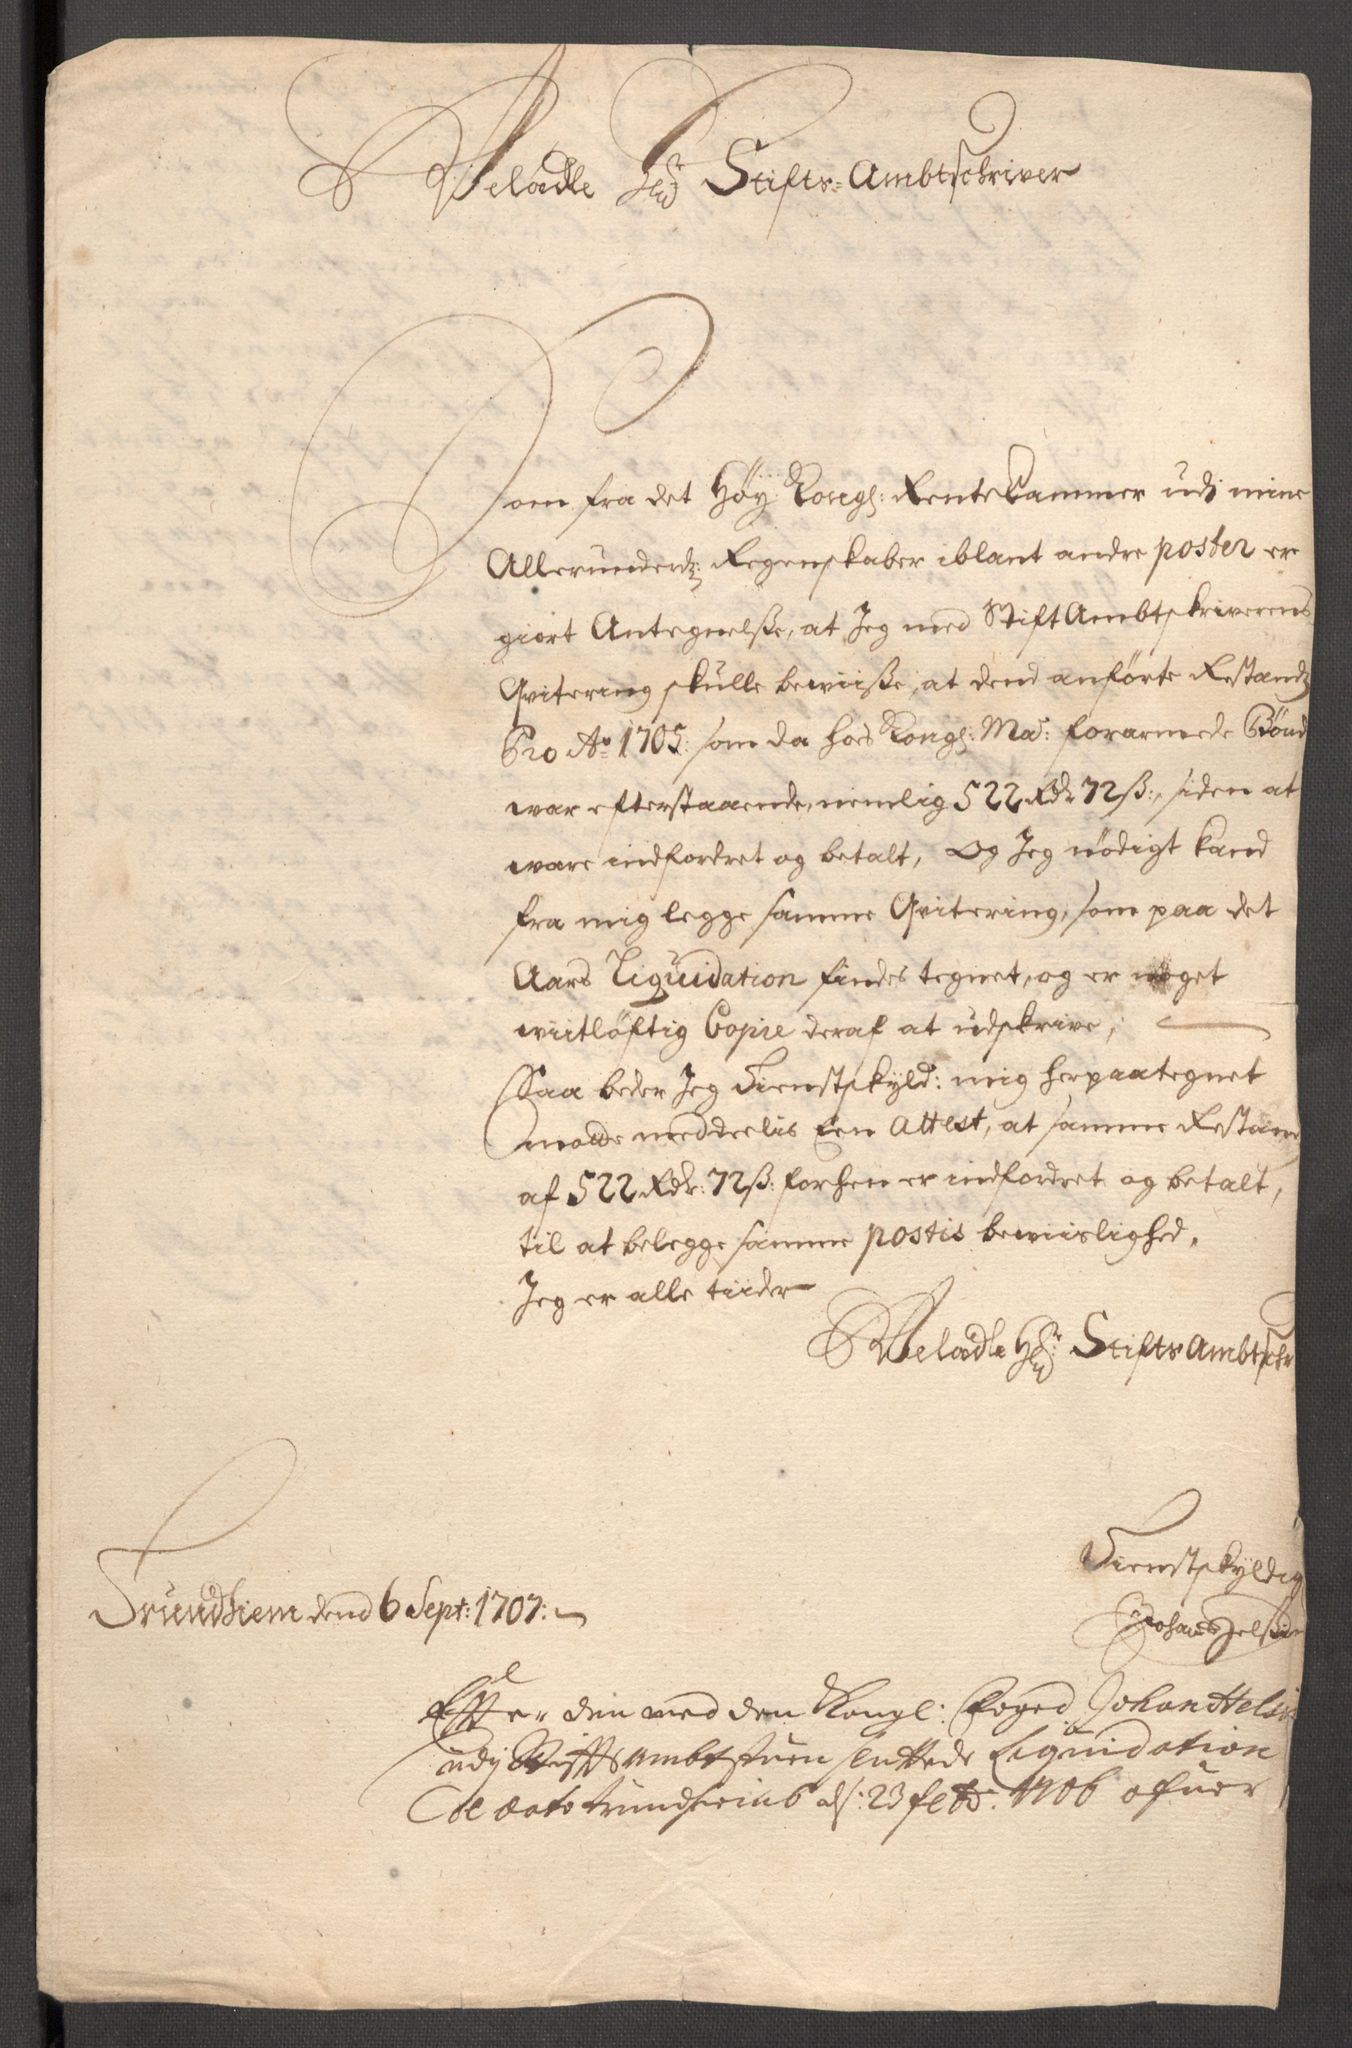 Welædle Hr Stifts-Ambtschriver
Som fra det Høy Kongl: RenteCammer udj mine
Allerunderd: Regenskaber iblant andre poster er
giort Antegnelsse, at Jeg med StiftAmbtskriverens
Qvitering skulle bewiisse, at dend anførte Restands
Pro Ao 1705: som da hos Kongl: May: forarmede Bønd
war efterstaaende, nemlig 522 Rdr 72 ß:, siden at
ware indfordret og betalt, Og Jeg nødigt kand
fra mig legge samme Qvitering, som paa det
Aars Liquidation findes tegnet, og er noget
wiitløftig Copie deraf at udskrive,
Saa beder Jeg Dienstskyld: mig herpaategnet
motte meddeelis Een Attest, at samme Restants
af 522 Rdr: 72 ß: forhen er indfordret og betalt,
til at belegge samme postis bewiislighed,
Jeg er alle tiider
Welædle Hr: Stifts Ambtschr
Dienstskyldig
Trundhiem dend 6 Sept: 1707:
Johan Helsing
Effter din med den Kongl: Foged Johan Helsi
udj Stiffts ambtstuen sluttede Liquidation
de dato Trundheimb d: 23 feb: 1706 ofuer